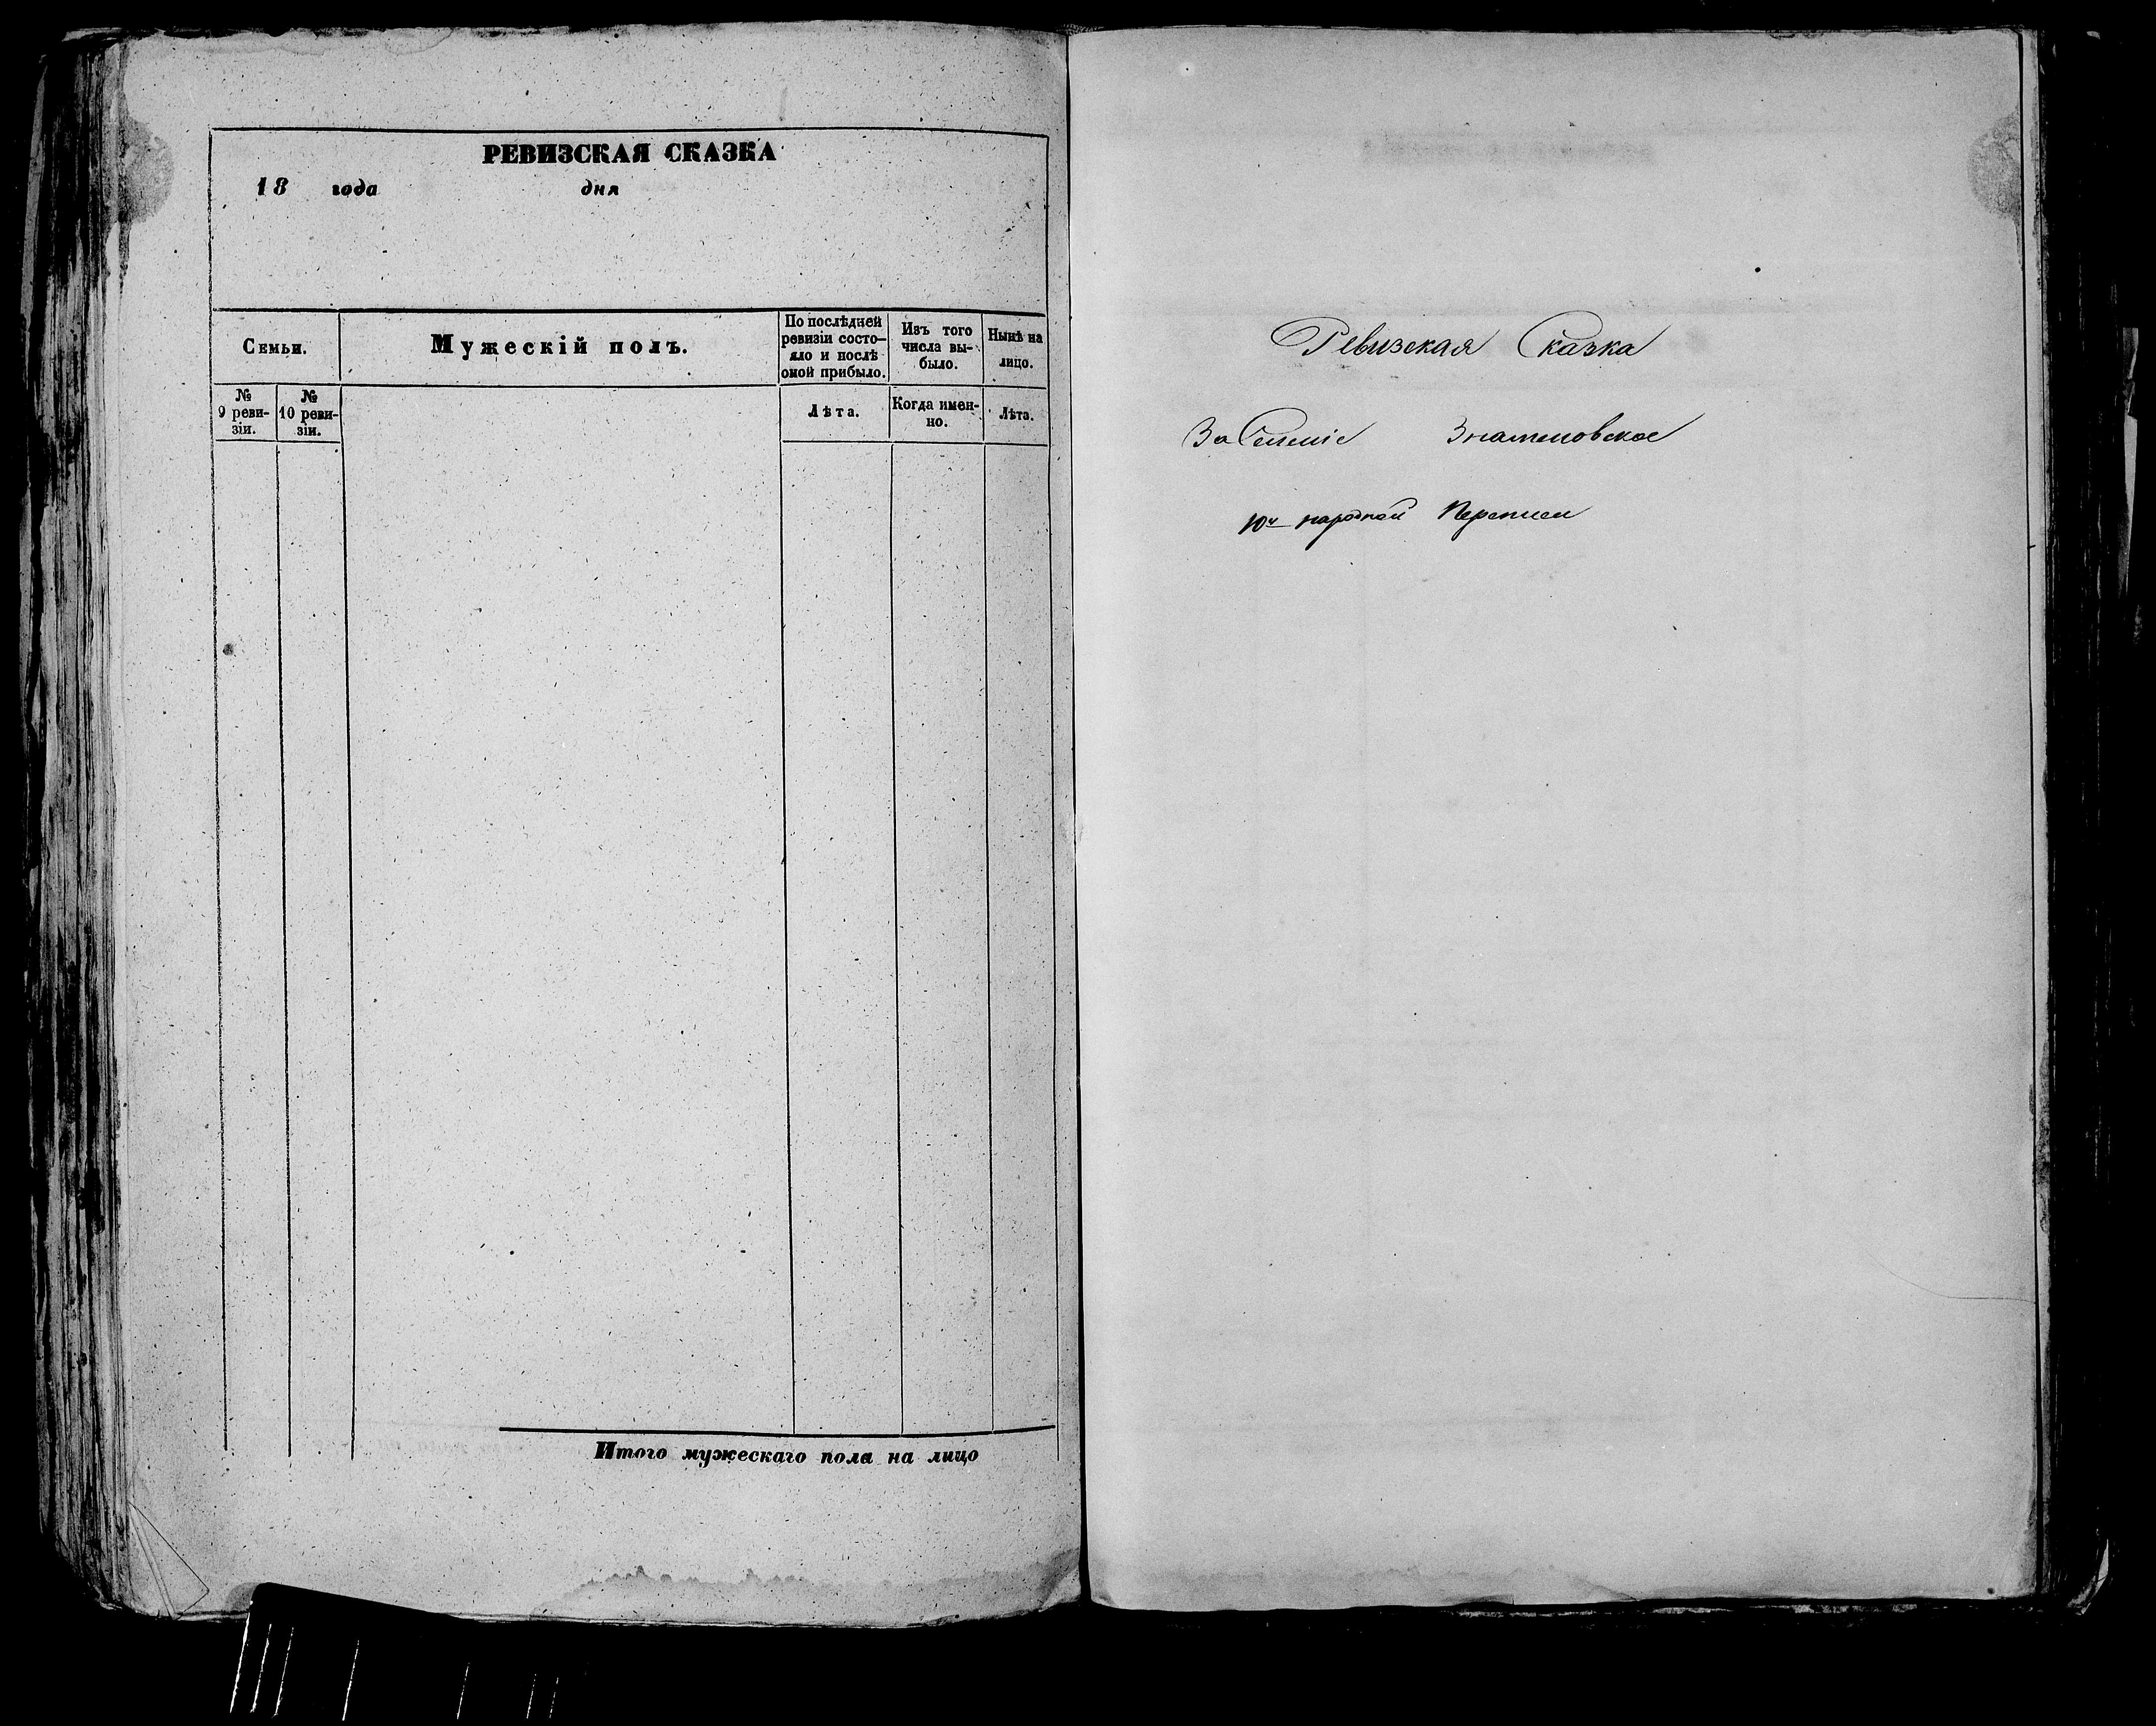 РЕВИЗСКАЯ СКАЗКА
18 года дня
Семьи.
Мужескій полъ.
По послѣдней
ревизіи состо-
яло и послѣ
оной прибыло.
Изъ того
числа вы-
было.
Нынѣ на
лицо.
№
9 реви-
зіи.
№
10 реви-
зіи.
Лѣта.
Когда имен-
но.
Лѣта.
Итого мужескаго пола на лицо
Ревизская Сказка
За Селеніе Знаменовское
10й народной Переписи